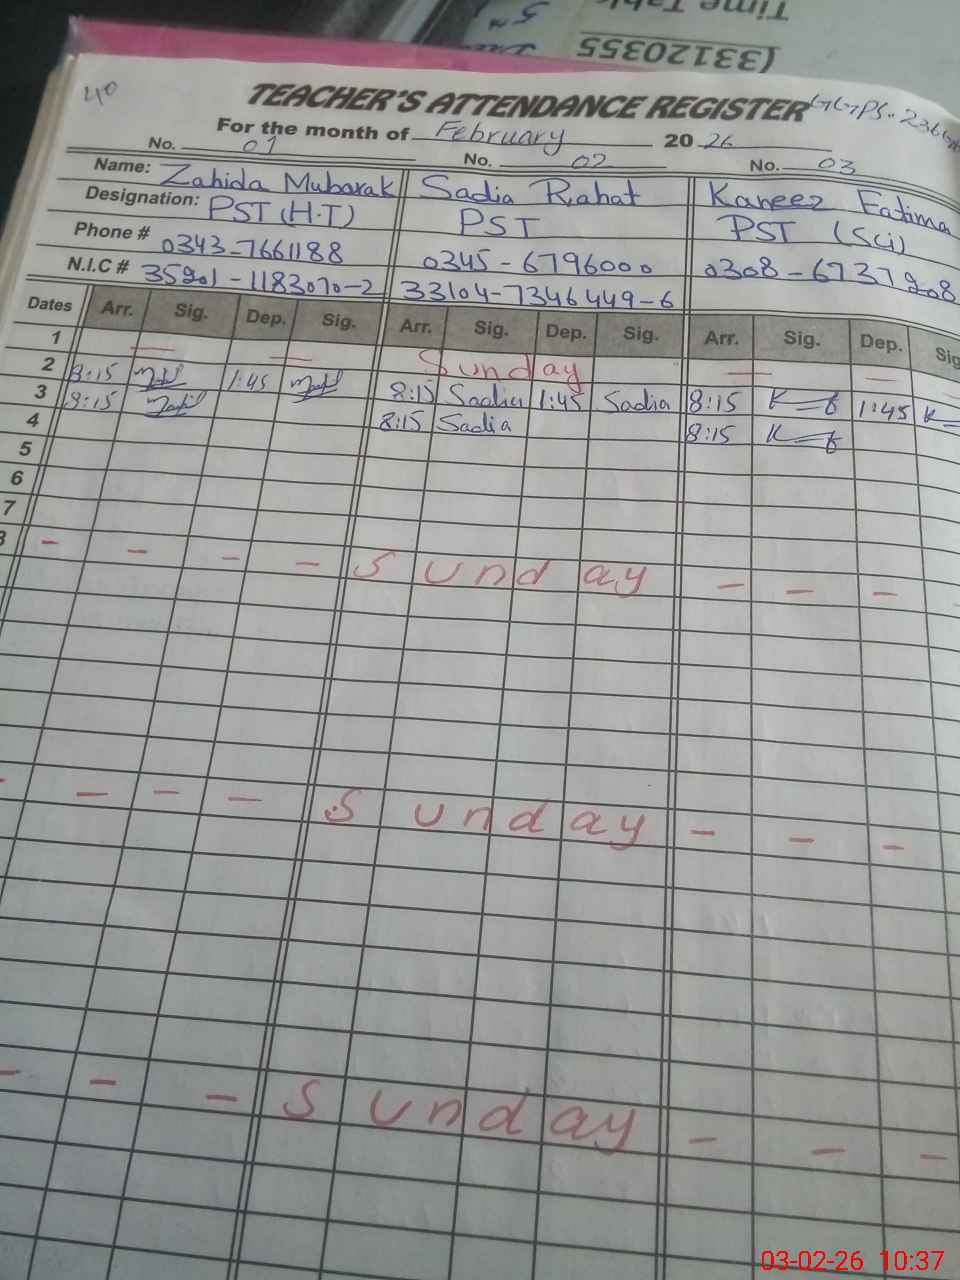 Time Table
(33120355
40
TEACHER'S ATTENDANCE REGISTER
For the month of February 2026
No. 01 No. 02 No. 03
Name: Zahida Mubarak Sadia Rahat Kaneez Fatima
Designation: PST (H.T) PST PST (Sci)
Phone # 0343-7661188 0345-6796000 0308-6737208
N.I.C # 35201-1183070-2 33104-7346449-6
Dates Arr. Sig. Dep. Sig. Arr. Sig. Dep. Sig. Arr. Sig. Dep. Sig
1 Sunday
2 8:15 1:45 8:15 Sadia 1:45 Sadia 8:15 K 1:45 K
3 8:15 8:15 Sadia 8:15 K
4
5
6
7
8 - - - - Sunday - - -
- - - - Sunday - - -
- - - Sunday - - -
03-02-26 10:37